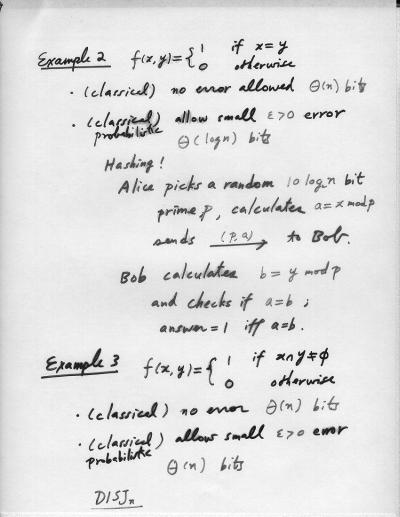 Example 2 f(x,y) = { 1 if x = y
0 otherwise
· (classical) no error allowed Θ(n) bits
· (classical) allow small ε>0 error
probabilistic Θ(log n) bits
Hashing!
Alice picks a random 10 log n bit
prime p, calculates a = x mod p
sends (p, a) to Bob.
Bob calculates b = y mod p
and checks if a = b ;
answer = 1 iff a = b.
Example 3 f(x,y) = { 1 if x∩y ≠ φ
0 otherwise
· (classical) no error Θ(n) bits
· (classical) allow small ε>0 error
probabilistic Θ(n) bits
DISJₙ